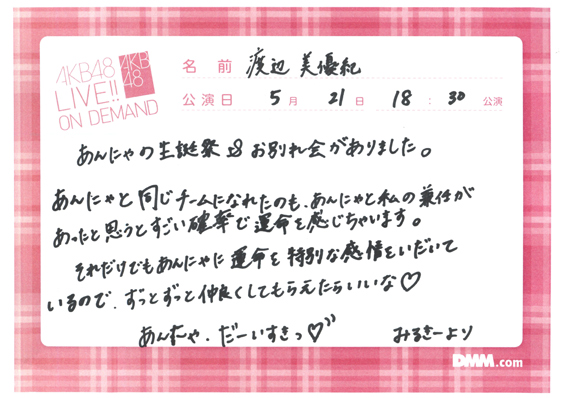 AKB48
LIVE!!
ON DEMAND
AKB
48
名前 渡辺 美優紀
公演日 5月 21日 18:30公演
あんにゃの生誕祭&お別れ会がありました。
あんにゃと同じチームになれたのも、あんにゃと私の兼任が
あったと思うとすごい確率で運命を感じちゃいます。
それだけでもあんにゃに運命を特別な感情をいだいて
いるので、ずっとずっと仲良くしてもらえたらいいな♡
あんにゃ、だーいすきっ♡"
みるきーより
DMM.com